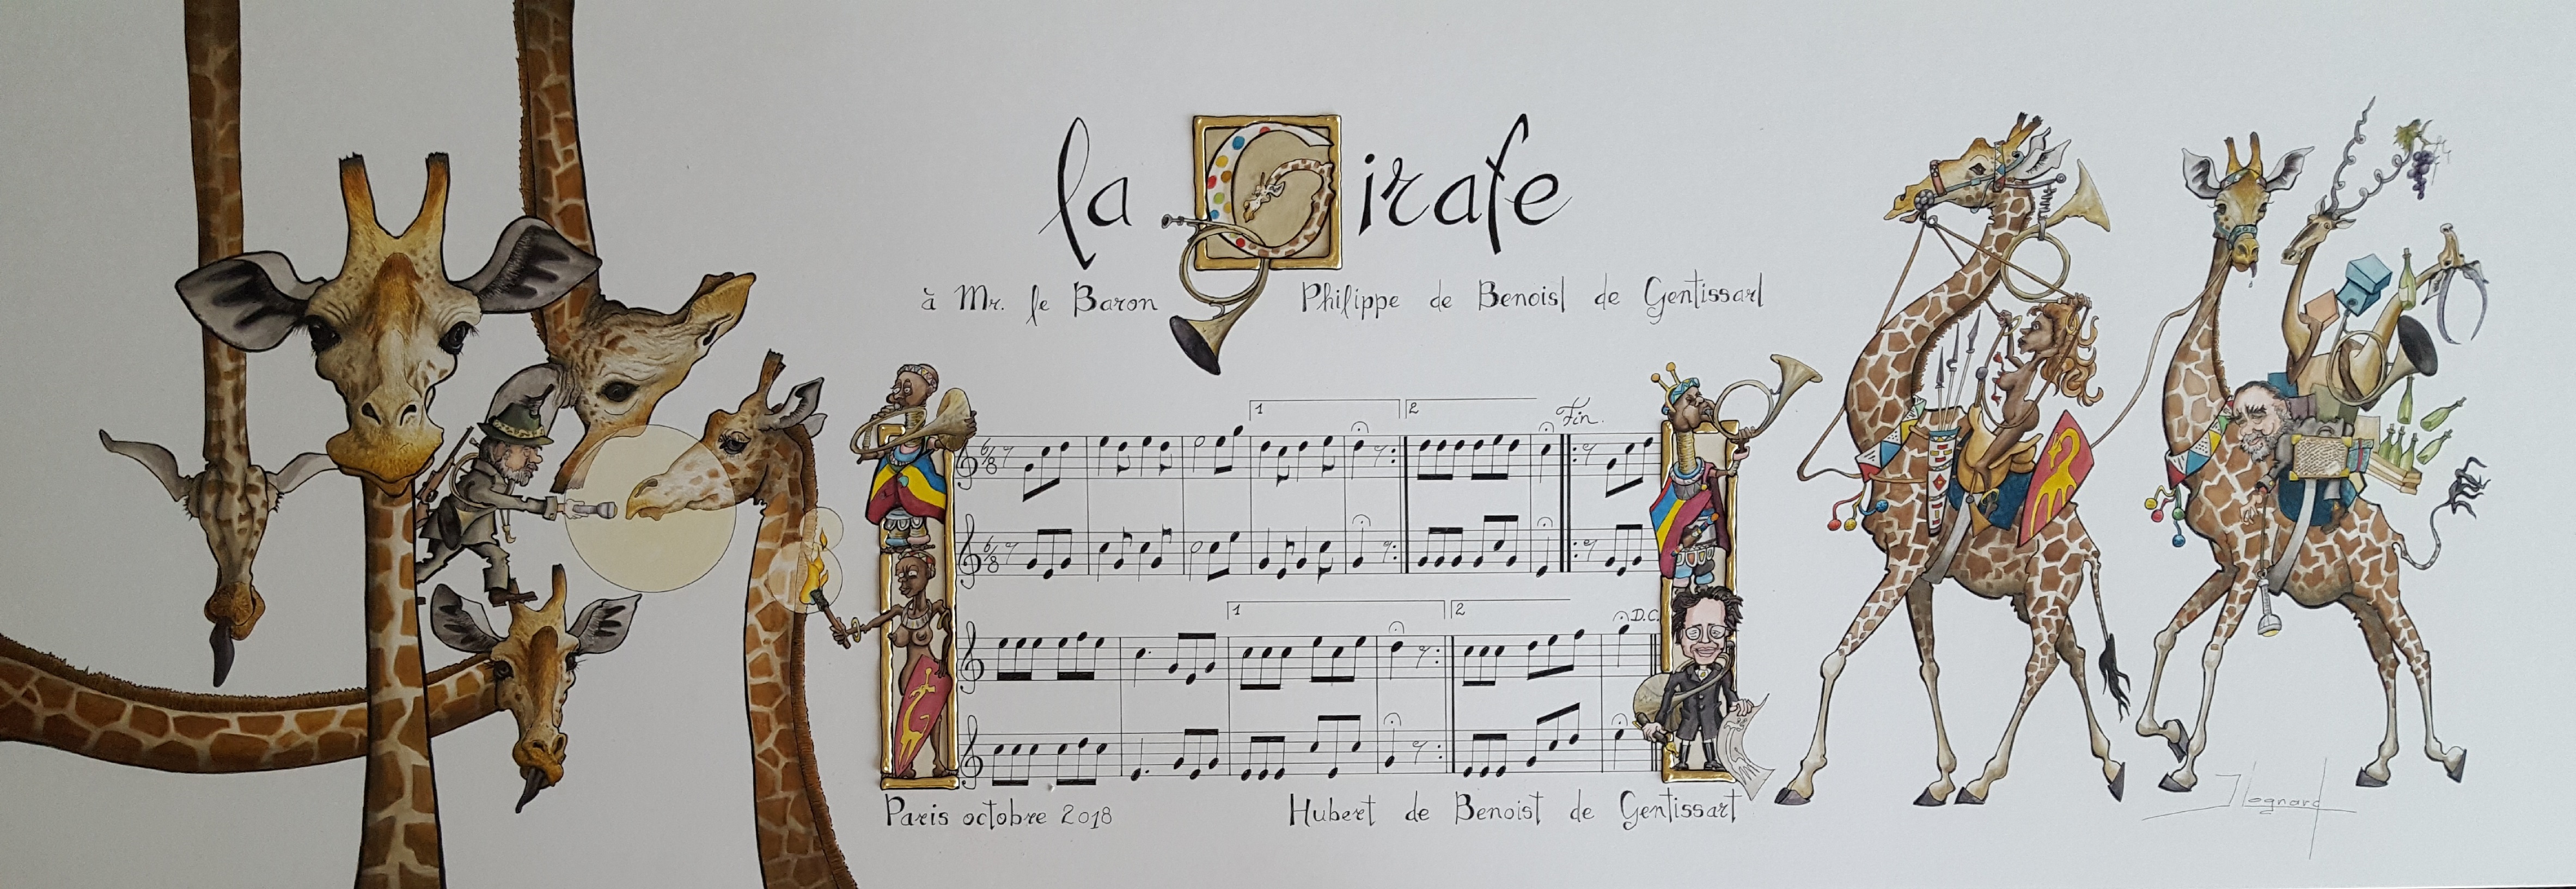 la Girafe
à Mr. le Baron Philippe de Benoist de Gentissart
1 2 Fin.
6 8
6 8
1 2 D.C.
Paris octobre 2018 Hubert de Benoist de Gentissart